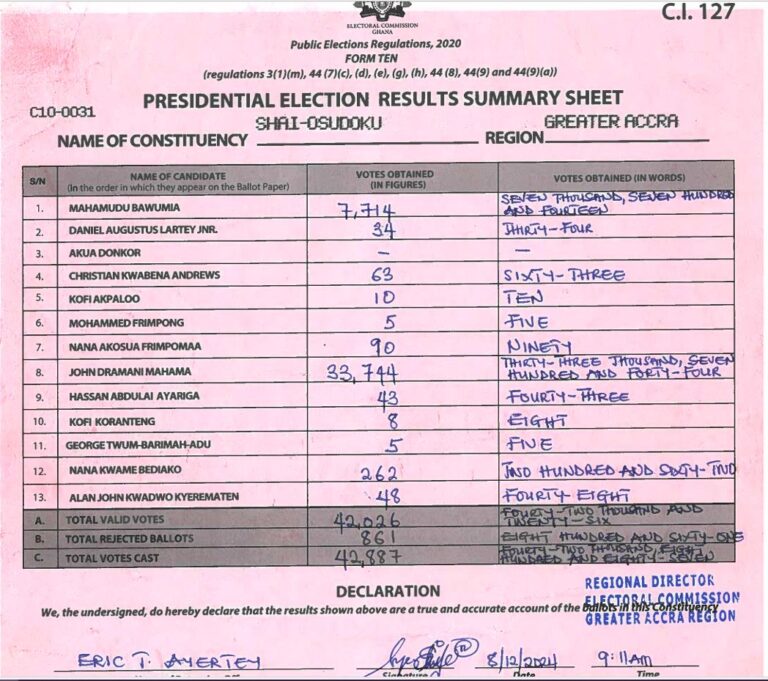 C.I. 127
ELECTORAL COMMISSION
GHANA
Public Elections Regulations, 2020
FORM TEN
(regulations 3(1)(m), 44 (7)(c), (d), (e), (g), (h), 44 (8), 44(9) and 44(9)(a))
PRESIDENTIAL ELECTION RESULTS SUMMARY SHEET
C10-0031
NAME OF CONSTITUENCY SHAI-OSUDOKU REGION GREATER ACCRA
S/N NAME OF CANDIDATE (In the order in which they appear on the Ballot Paper) VOTES OBTAINED (IN FIGURES) VOTES OBTAINED (IN WORDS)
1. MAHAMUDU BAWUMIA 7,714 SEVEN THOUSAND, SEVEN HUNDRED AND FOURTEEN
2. DANIEL AUGUSTUS LARTEY JNR. 34 THIRTY-FOUR
3. AKUA DONKOR – –
4. CHRISTIAN KWABENA ANDREWS 63 SIXTY-THREE
5. KOFI AKPALOO 10 TEN
6. MOHAMMED FRIMPONG 5 FIVE
7. NANA AKOSUA FRIMPOMAA 90 NINETY
8. JOHN DRAMANI MAHAMA 33,744 THIRTY-THREE THOUSAND, SEVEN HUNDRED AND FORTY-FOUR
9. HASSAN ABDULAI AYARIGA 43 FOURTY-THREE
10. KOFI KORANTENG 8 EIGHT
11. GEORGE TWUM-BARIMAH-ADU 5 FIVE
12. NANA KWAME BEDIAKO 262 TWO HUNDRED AND SIXTY-TWO
13. ALAN JOHN KWADWO KYEREMATEN 48 FOURTY EIGHT
A. TOTAL VALID VOTES 42,026 FOURTY-TWO THOUSAND AND TWENTY-SIX
B. TOTAL REJECTED BALLOTS 861 EIGHT HUNDRED AND SIXTY-ONE
C. TOTAL VOTES CAST 42,887 FOURTY-TWO THOUSAND, EIGHT HUNDRED AND EIGHTY-SEVEN
DECLARATION
REGIONAL DIRECTOR
ELECTORAL COMMISSION
GREATER ACCRA REGION
We, the undersigned, do hereby declare that the results shown above are a true and accurate account of the ballots in this Constituency
ERIC T. AYERTEY 8/12/2024 9:11AM
Signature Date Time